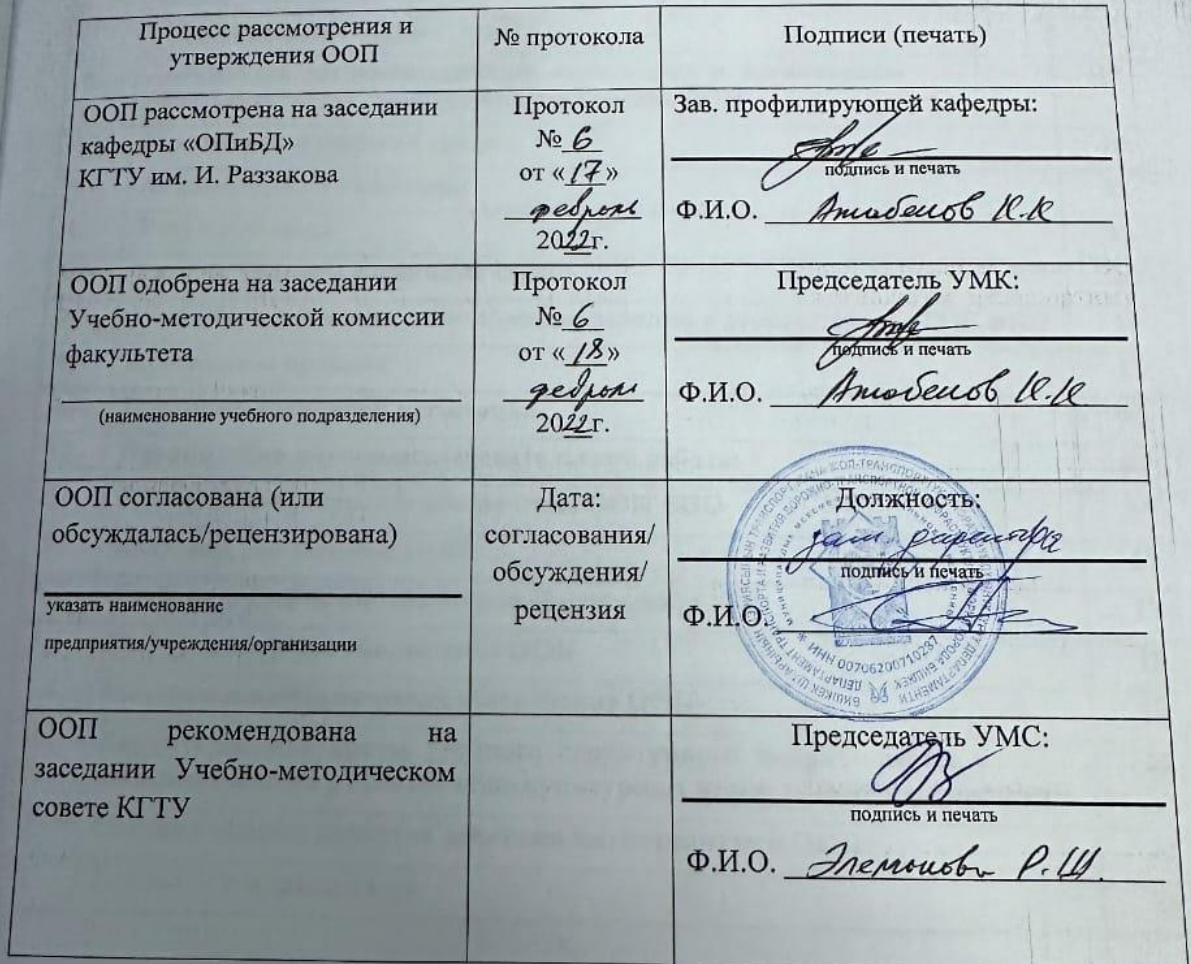 Процесс рассмотрения и
утверждения ООП
№ протокола
Подписи (печать)
ООП рассмотрена на заседании
кафедры «ОПиБД»
КГТУ им. И. Раззакова
Протокол
№ 6
от «17»
февраль
2022г.
Зав. профилирующей кафедры:
подпись и печать
Ф.И.О. К.К
ООП одобрена на заседании
Учебно-методической комиссии
факультета
(наименование учебного подразделения)
Протокол
№ 6
от «18»
февраль
2022г.
Председатель УМК:
подпись и печать
Ф.И.О. К.К
ООП согласована (или
обсуждалась/рецензирована)
указать наименование
предприятия/учреждения/организации
Дата:
согласования/
обсуждения/
рецензия
Должность:
зам. директора
подпись и печать
Ф.И.О.
ИНН 00706200710237
ООП рекомендована на
заседании Учебно-методическом
совете КГТУ
Председатель УМС:
подпись и печать
Ф.И.О. Р.Ш.